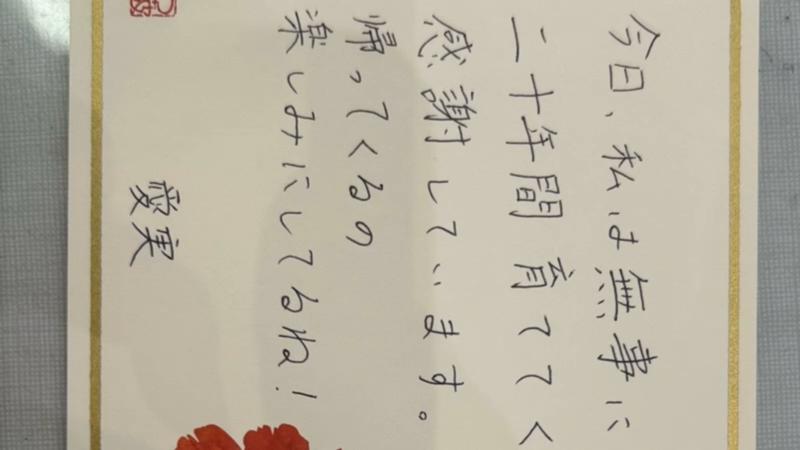 今日、私は無事に
二十年間育ててく
感謝しています。
帰ってくるの
楽しみにしてるね！
愛実